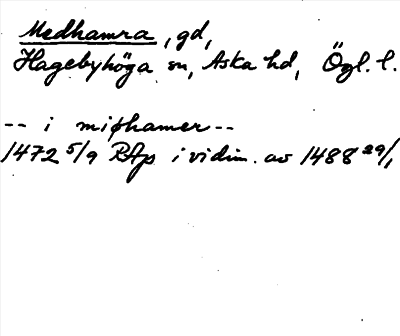 Medhamra, gd,
Hagebyhöga sn, Aska hd, Ögl. l.
-- i miþhamer --
1472 5/9 RAp i vidim. av 1488 29/1